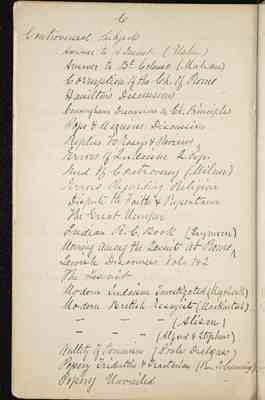 C
Controversial Subjects
Answer to a Jesuit (Usher)
Answer to Bp Colenso (Mahan)
Corruption of the Ch. of Rome
Hamilton's Discussions
Discourses on Ch. Principles
Pope & Maguires Discussion
Replies to Essays & Reviews
Errors of Romanism 2 Copies
End of Controversy (Milner)
Errors Regarding Religion
Disputed Faith & Repentance
The Great
Indian R. C. Book
Morning Among the Jesuits at Rome
Jewish Discourses Vols 1 & 2
The Jesuit
Modern Judaism Investigated
Modern British Essayist (Mackintosh)
" " " (Alison)
" " " (Alford & Stephens)
Nullity of Romanism
Popery Tridentine & Tractarian
Popery Unveiled